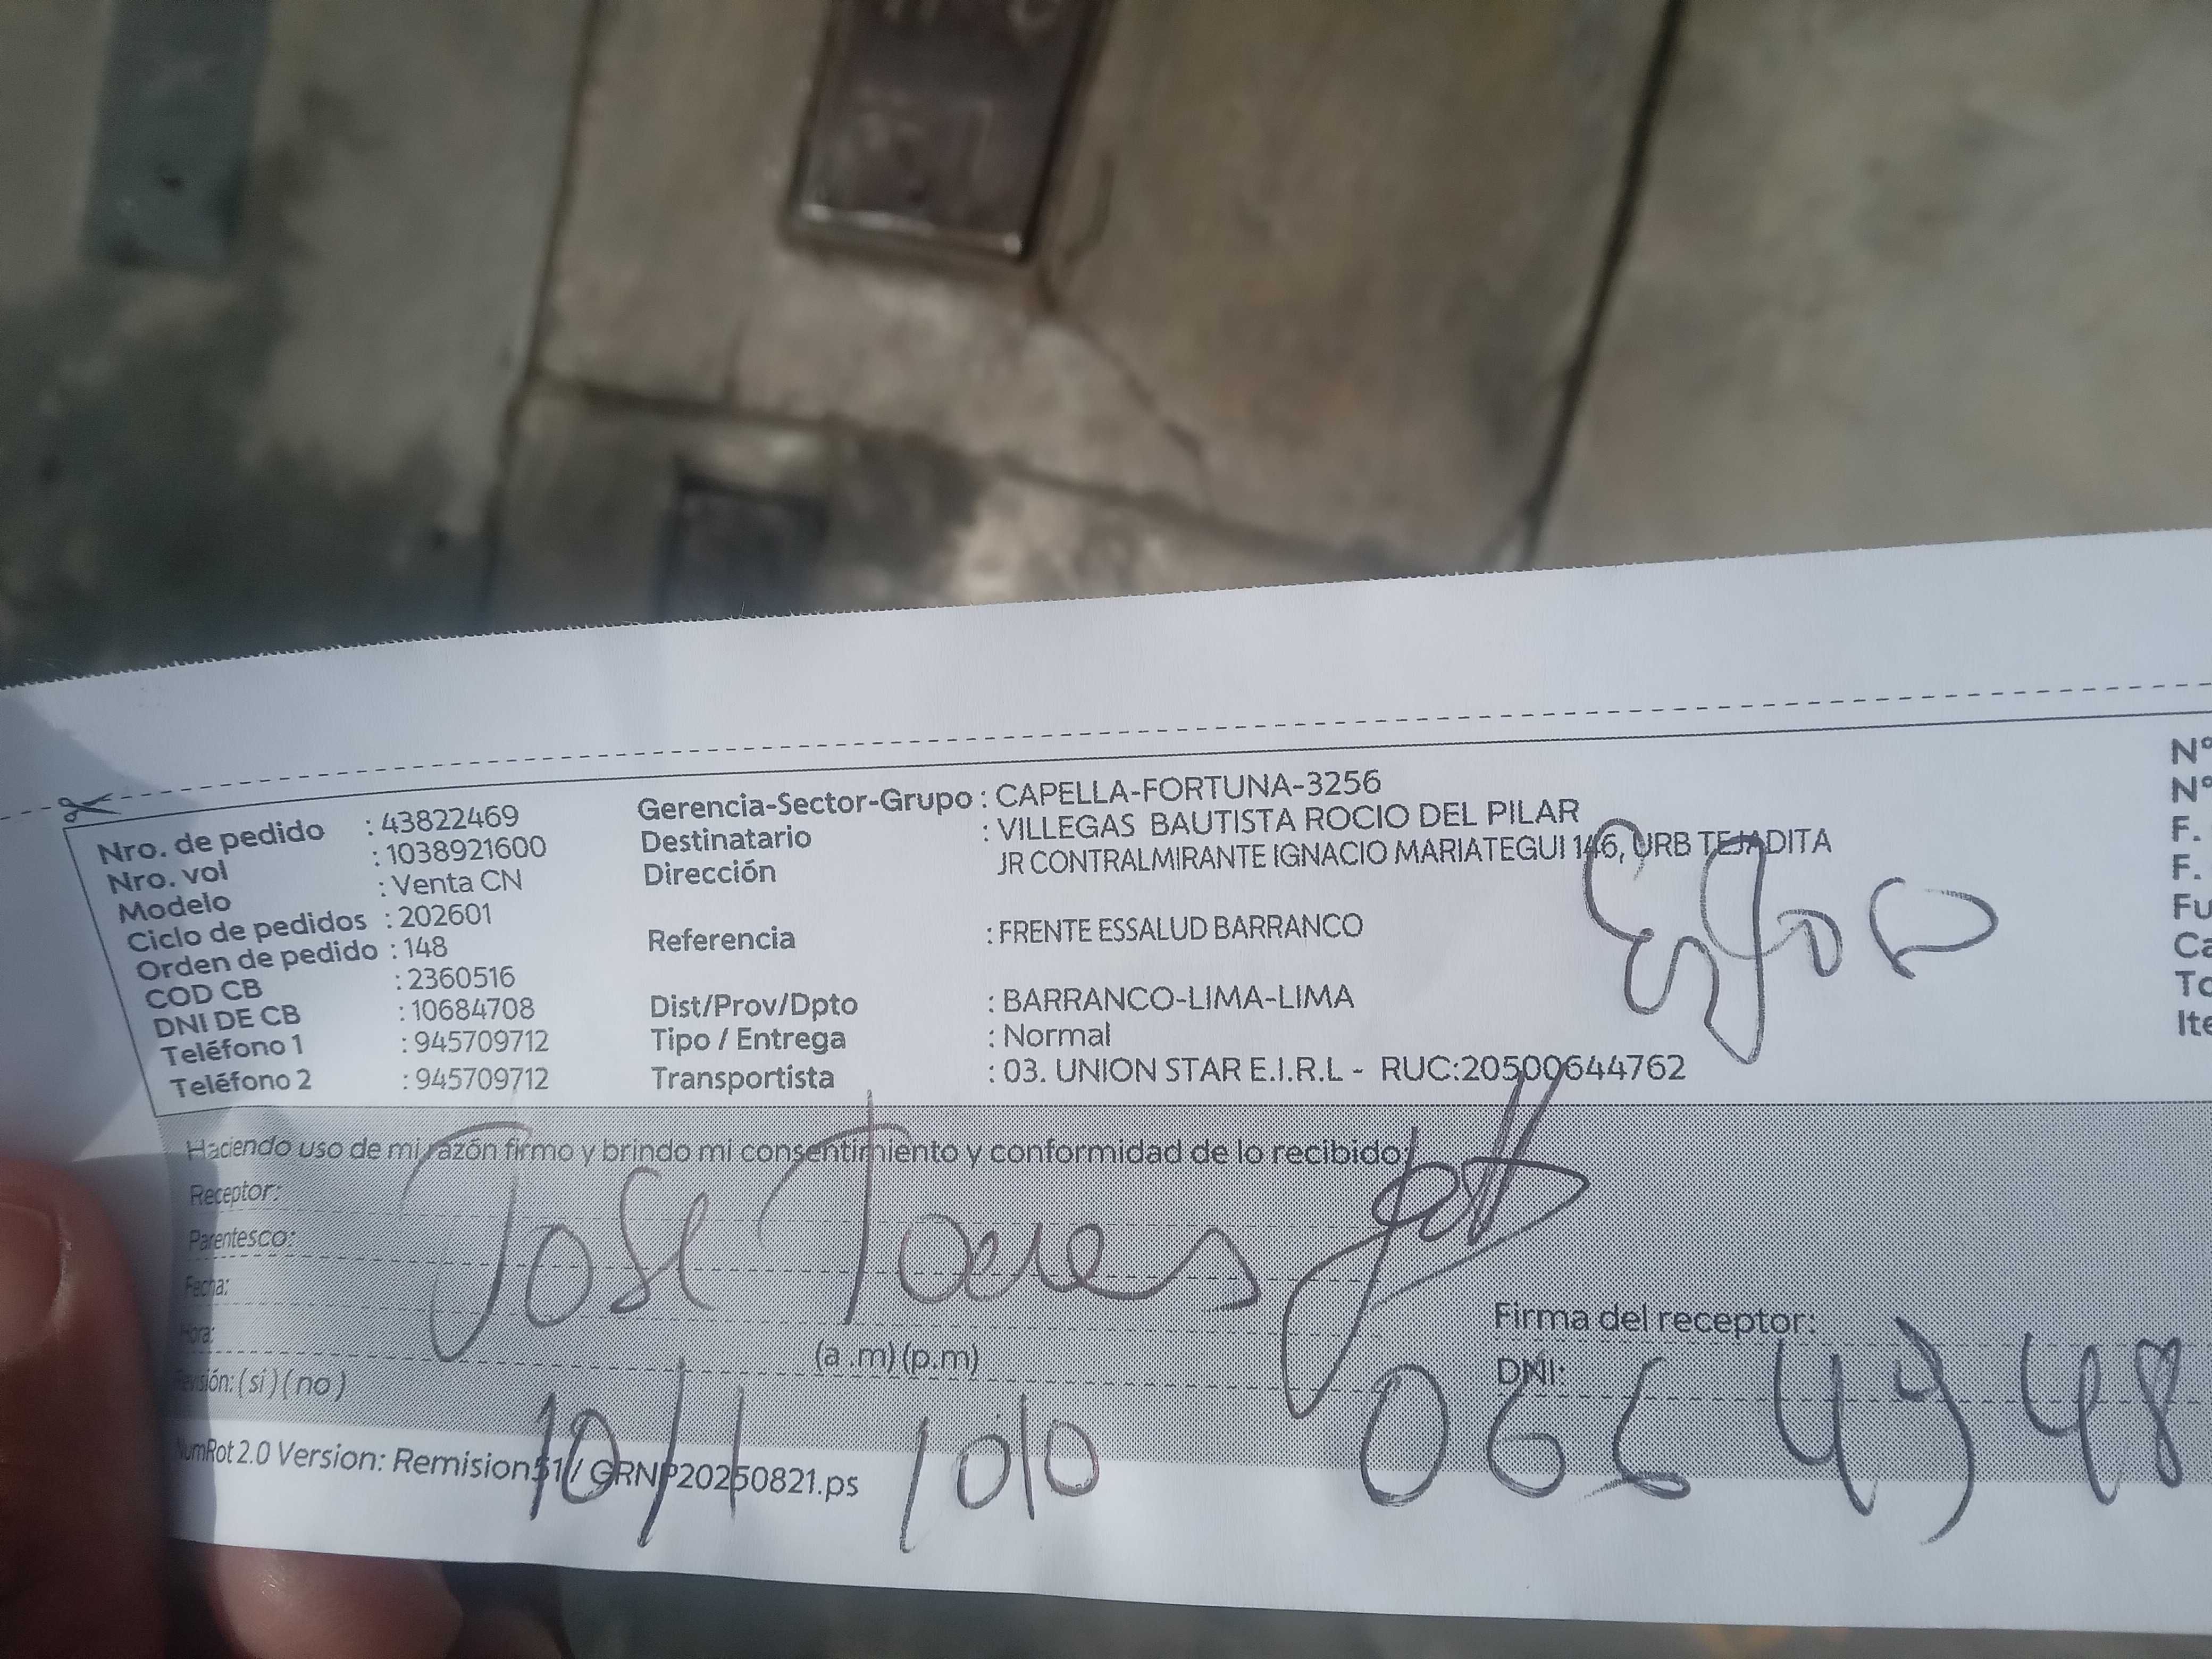 Nro. de pedido : 43822469
Nro. vol : 1038921600
Modelo : Venta CN
Ciclo de pedidos : 202601
Orden de pedido : 148
COD CB : 2360516
DNI DE CB : 10684708
Teléfono 1 : 945709712
Teléfono 2 : 945709712
Gerencia-Sector-Grupo : CAPELLA-FORTUNA-3256
Destinatario : VILLEGAS BAUTISTA ROCIO DEL PILAR
Dirección JR CONTRALMIRANTE IGNACIO MARIATEGUI 146, URB TEJADITA
Referencia : FRENTE ESSALUD BARRANCO
Dist/Prov/Dpto : BARRANCO-LIMA-LIMA
Tipo / Entrega : Normal
Transportista : 03. UNION STAR E.I.R.L - RUC:20500644762
N°
N°
F.
F.
Fu
Ca
To
Ite
Esposo
Haciendo uso de mi razón firmo y brindo mi consentimiento y conformidad de lo recibido:
Receptor:
Parentesco:
Jose Torres
Fecha:
Hora: (a.m) (p.m)
Firma del receptor:
DNI:
Revisión: ( si ) ( no )
10/1 1010
NumRot 2.0 Version: Remision51 / GRNP20250821.ps